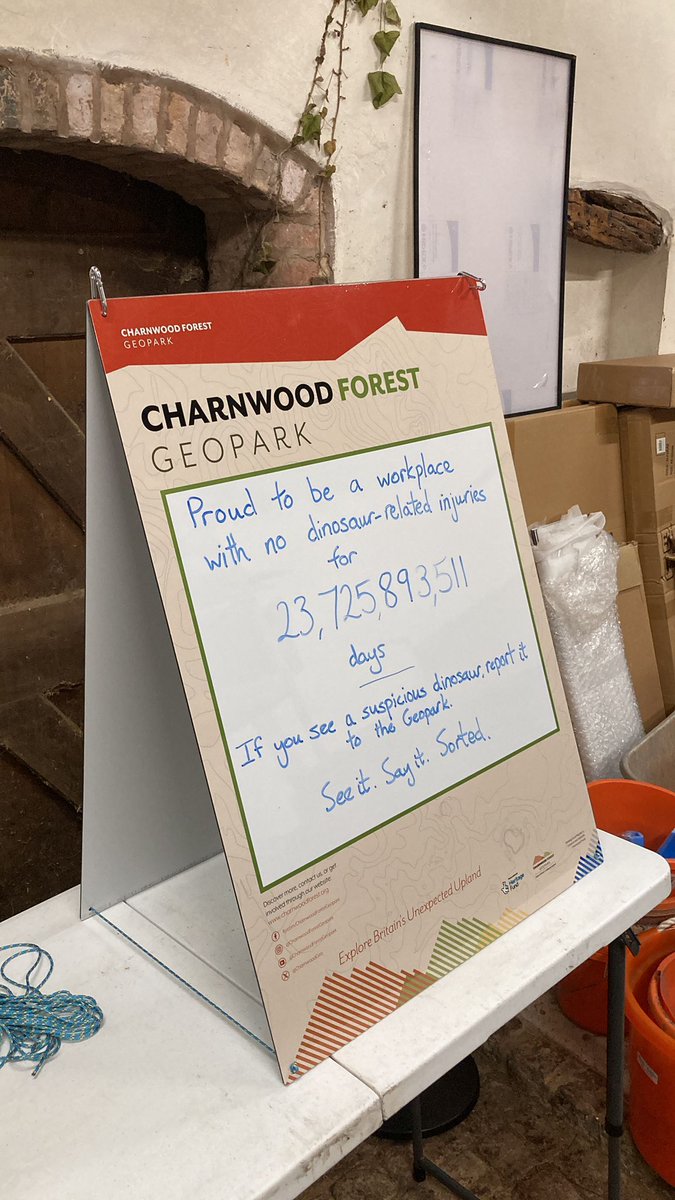 CHARNWOOD FOREST
GEOPARK
CHARNWOOD FOREST
GEOPARK
Proud to be a workplace
with no dinosaur-related injuries
for
23,725,893,511
days
If you see a suspicious dinosaur, report it
to the Geopark.
See it. Say it. Sorted.
Discover more, contact us, or get
involved through our website:
www.charnwoodforest.org
@CharnwoodForestGeopark
Explore Britain's Unexpected Upland
Heritage
Fund